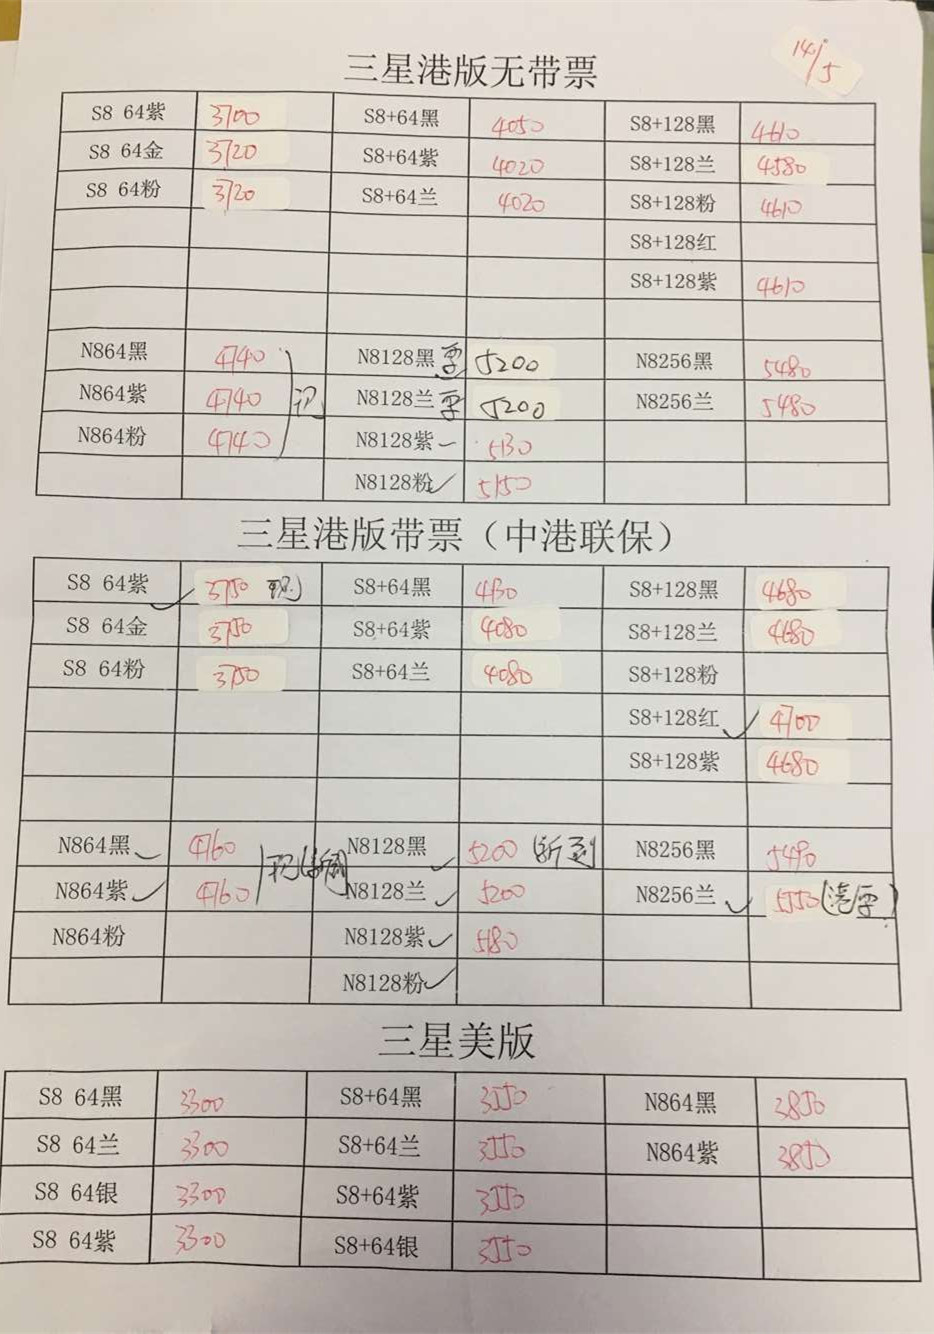 14/5
三星港版无带票
S8 64紫 3700 S8+64黑 4050 S8+128黑 4610
S8 64金 3720 S8+64紫 4020 S8+128兰 4580
S8 64粉 3720 S8+64兰 4020 S8+128粉 4610
S8+128红
S8+128紫 4610
N864黑 4740 N8128黑 5200 N8256黑 5480
N864紫 4740 现 N8128兰 5200 N8256兰 5480
N864粉 4740 N8128紫 5130
N8128粉 5150
三星港版带票（中港联保）
S8 64紫 3750 现 S8+64黑 4130 S8+128黑 4680
S8 64金 3750 S8+64紫 4080 S8+128兰 4680
S8 64粉 3750 S8+64兰 4080 S8+128粉
S8+128红 4700
S8+128紫 4680
N864黑 4760 N8128黑 5200 (新到 N8256黑 5490
N864紫 4760 N8128兰 5200 N8256兰 5550
N864粉 N8128紫 5180
N8128粉
三星美版
S8 64黑 3300 S8+64黑 3550 N864黑 3850
S8 64兰 3300 S8+64兰 3550 N864紫 3850
S8 64银 3300 S8+64紫 3550
S8 64紫 3300 S8+64银 3550